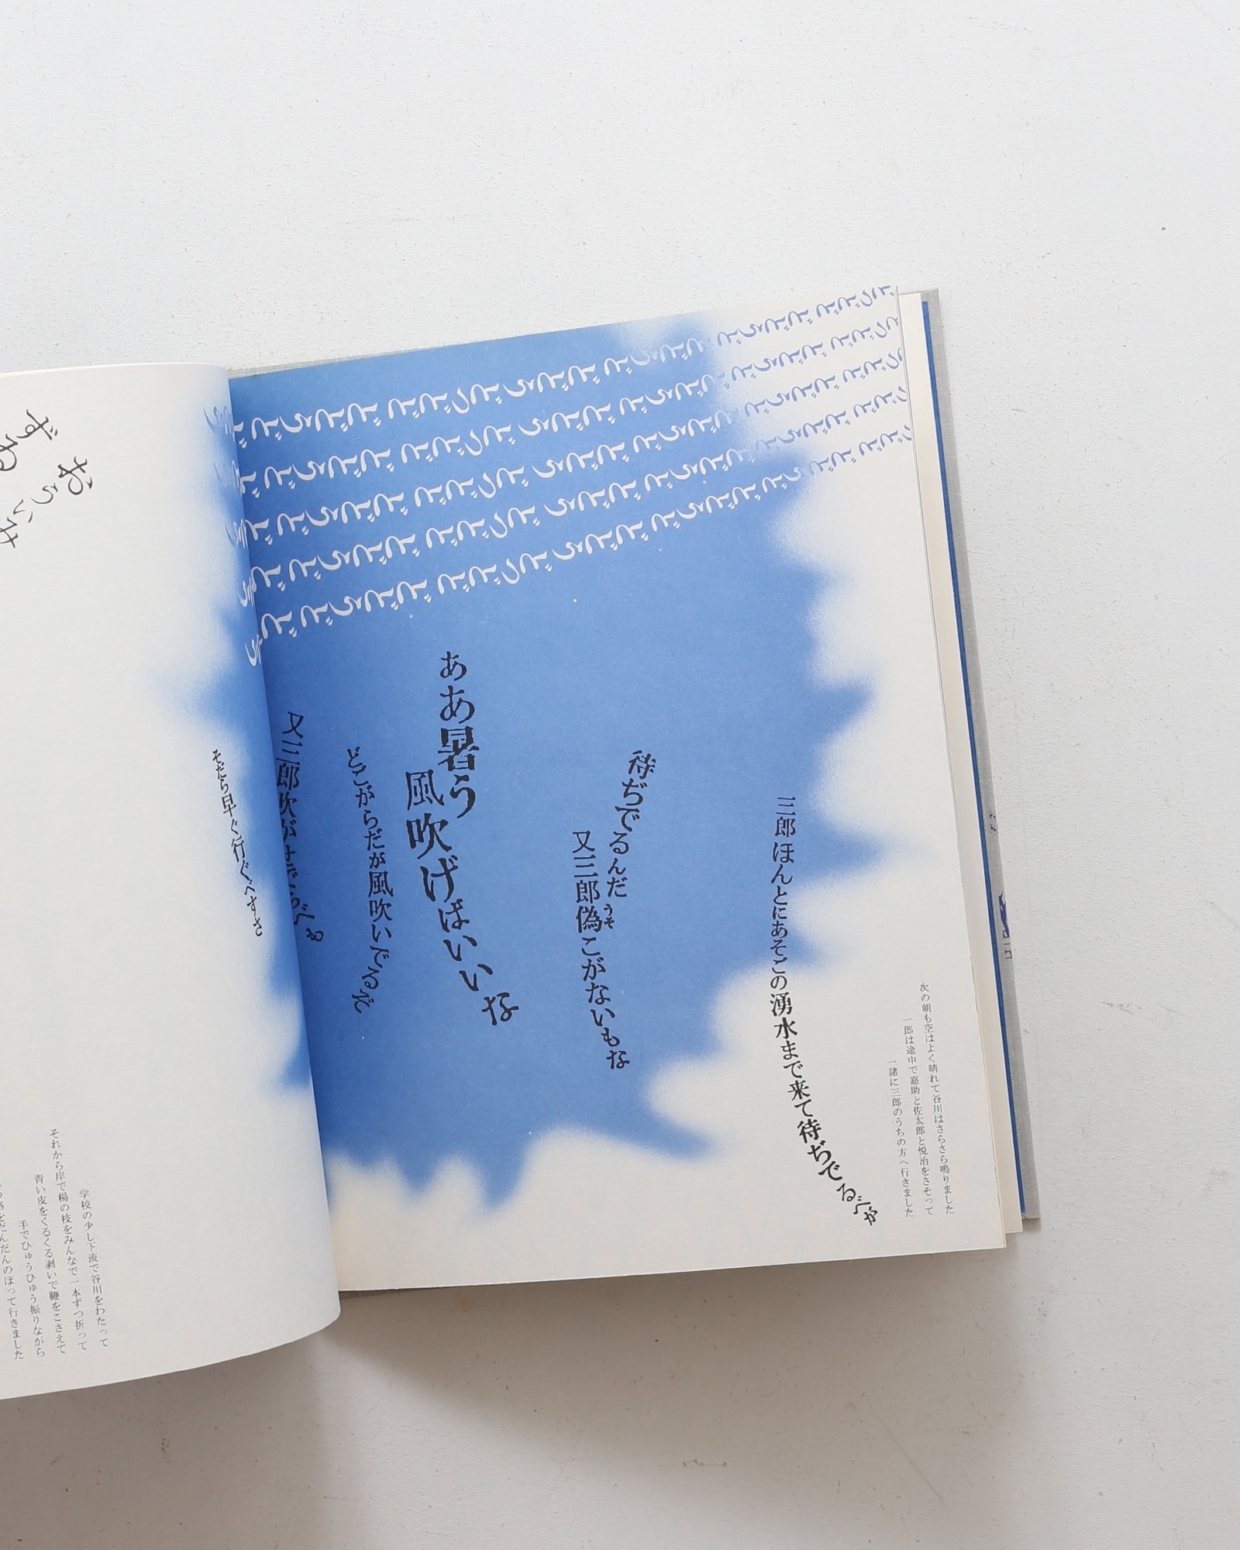 っどど どどうど どどうど どどう どっどど どどうど ど
っどど どどうど どどうど どどう どっどど どどうど ど
っどど どどうど どどうど どどう どっどど どどうど ど
っどど どどうど どどうど どどう どっどど どどうど ど
っどど どどうど どどうど どどう どっどど どどうど ど
次の朝も空はよく晴れて谷川はさらさら鳴りました
一郎は途中で嘉助と佐太郎と悦治をさそって
一諸に三郎のうちの方へ行きました
三郎ほんとにあそごの湧水まで来て待ぢでるべが
待ぢでるんだ
又三郎偽こがないもな
うそ
ああ暑う
風吹げばいいな
どごがらだが風吹いでるぞ
又三郎吹がせだらべも
そだら早ぐ行ぐべすさ
学校の少し下流で谷川をわたって
それから岸で楊の枝をみんなで一本ずつ折って
青い皮をくるくる剥いで鞭をこさえて
手でひゅうひゅう振りながら
路をだんだんのぼって行きました